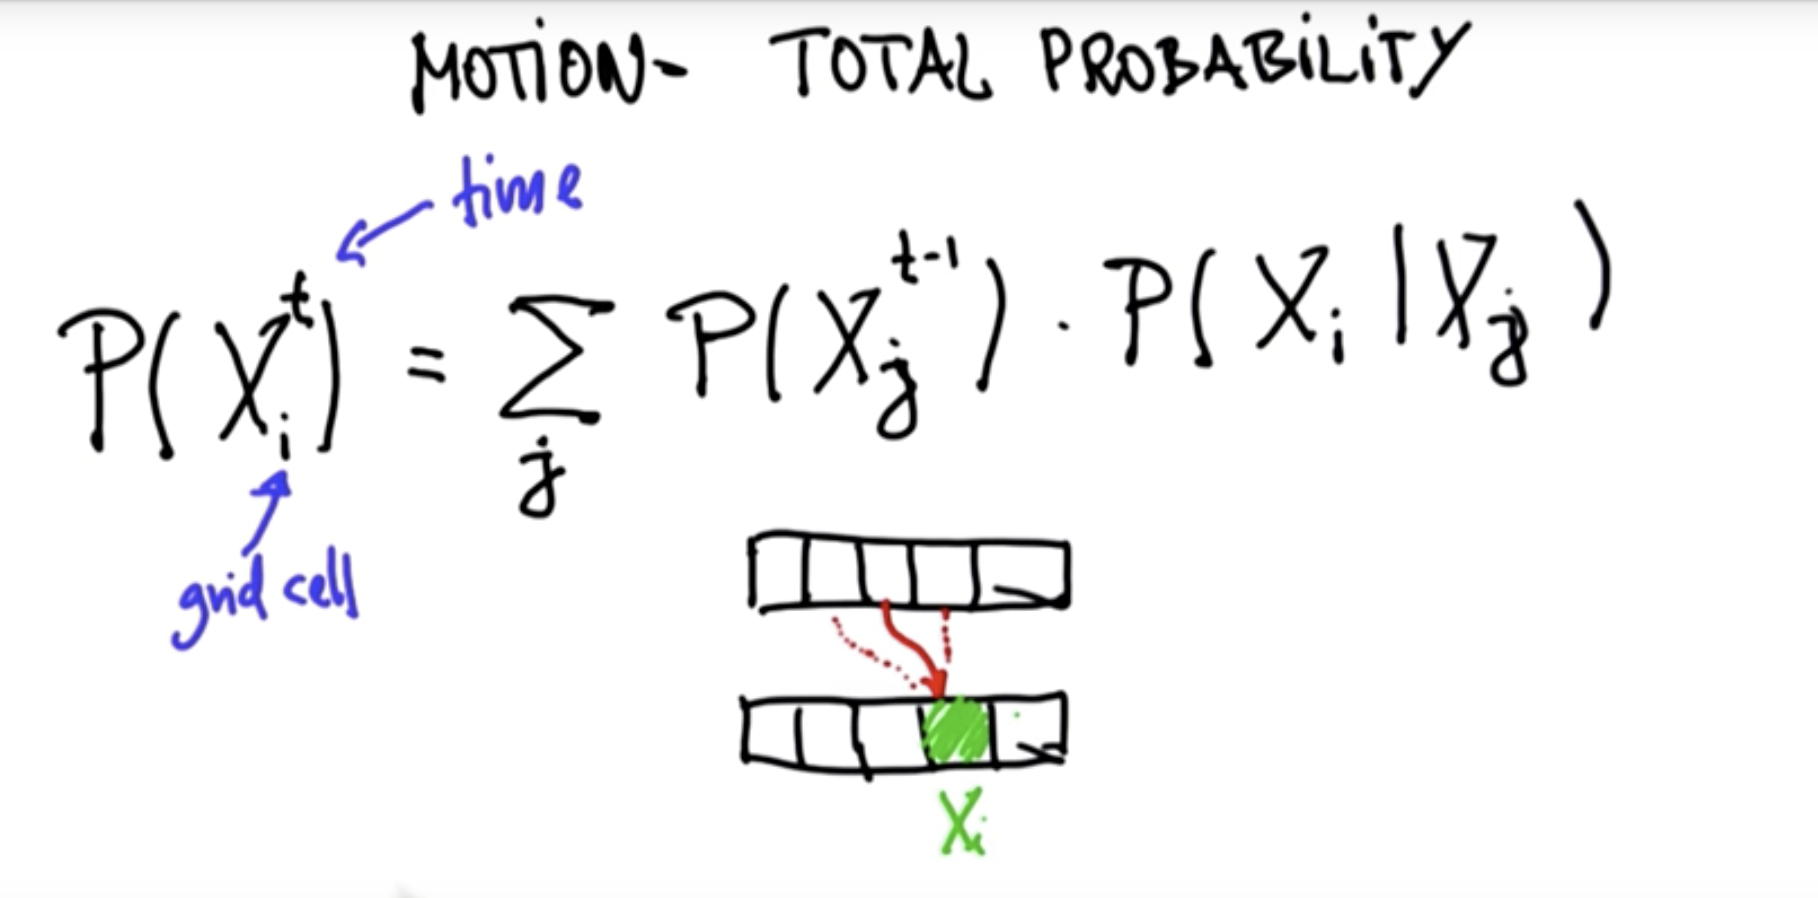 MOTION- TOTAL PROBABILITY
time
P(X_i^t) = Σ_j P(X_j^{t-1}) . P(X_i | X_j)
grid cell
X_i